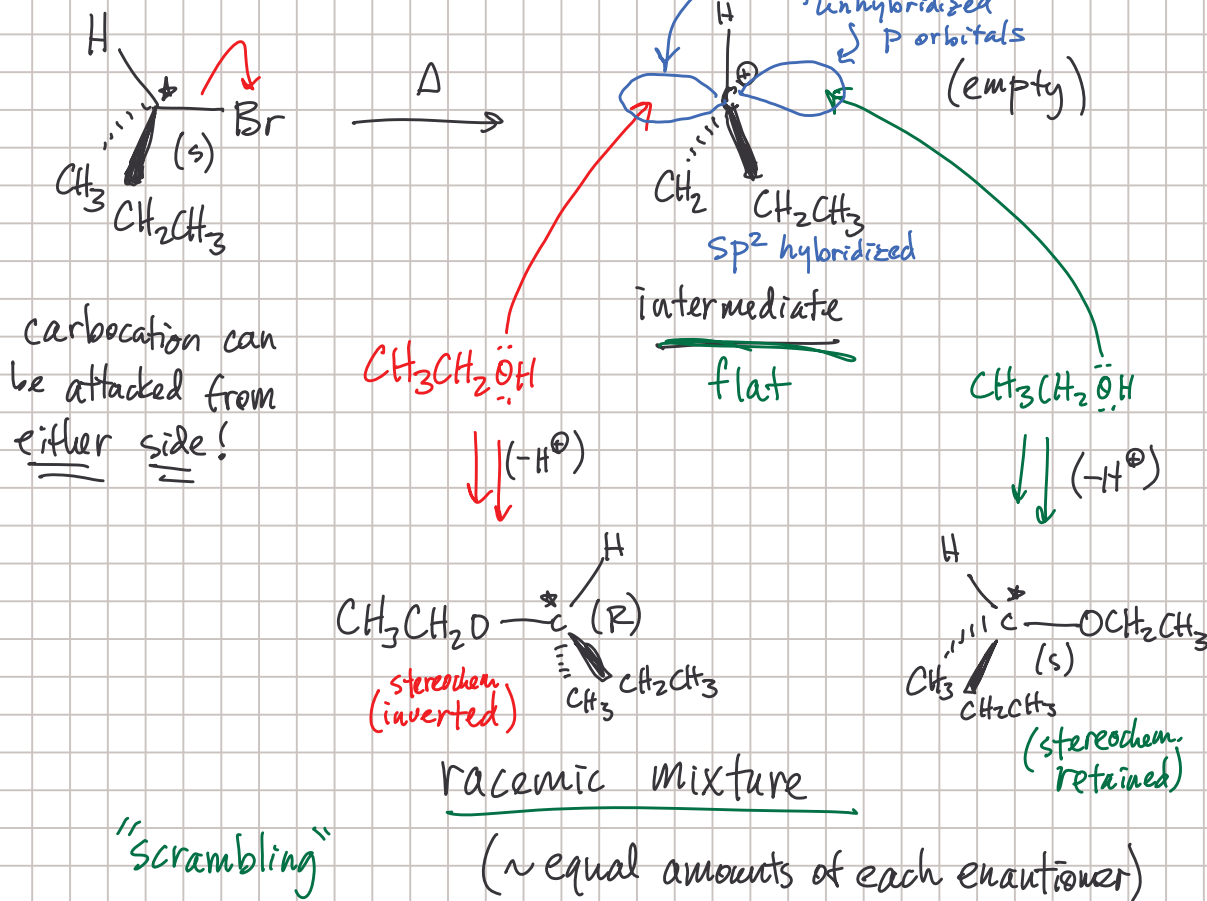 H
Br
(s)
CH₃
CH₂CH₃
Δ
H
unhybridized
p orbitals
(empty)
⊕
C
CH₂
CH₂CH₃
sp² hybridized
intermediate
flat
carbocation can
be attacked from
either side!
CH₃CH₂ÖH
(-H⊕)
CH₃CH₂ÖH
(-H⊕)
H
CH₃CH₂O C (R)
CH₃
CH₂CH₃
stereochem
(inverted)
H
C OCH₂CH₃
(s)
CH₃
CH₂CH₃
(stereochem.
retained)
racemic mixture
"scrambling"
(~equal amounts of each enantiomer)